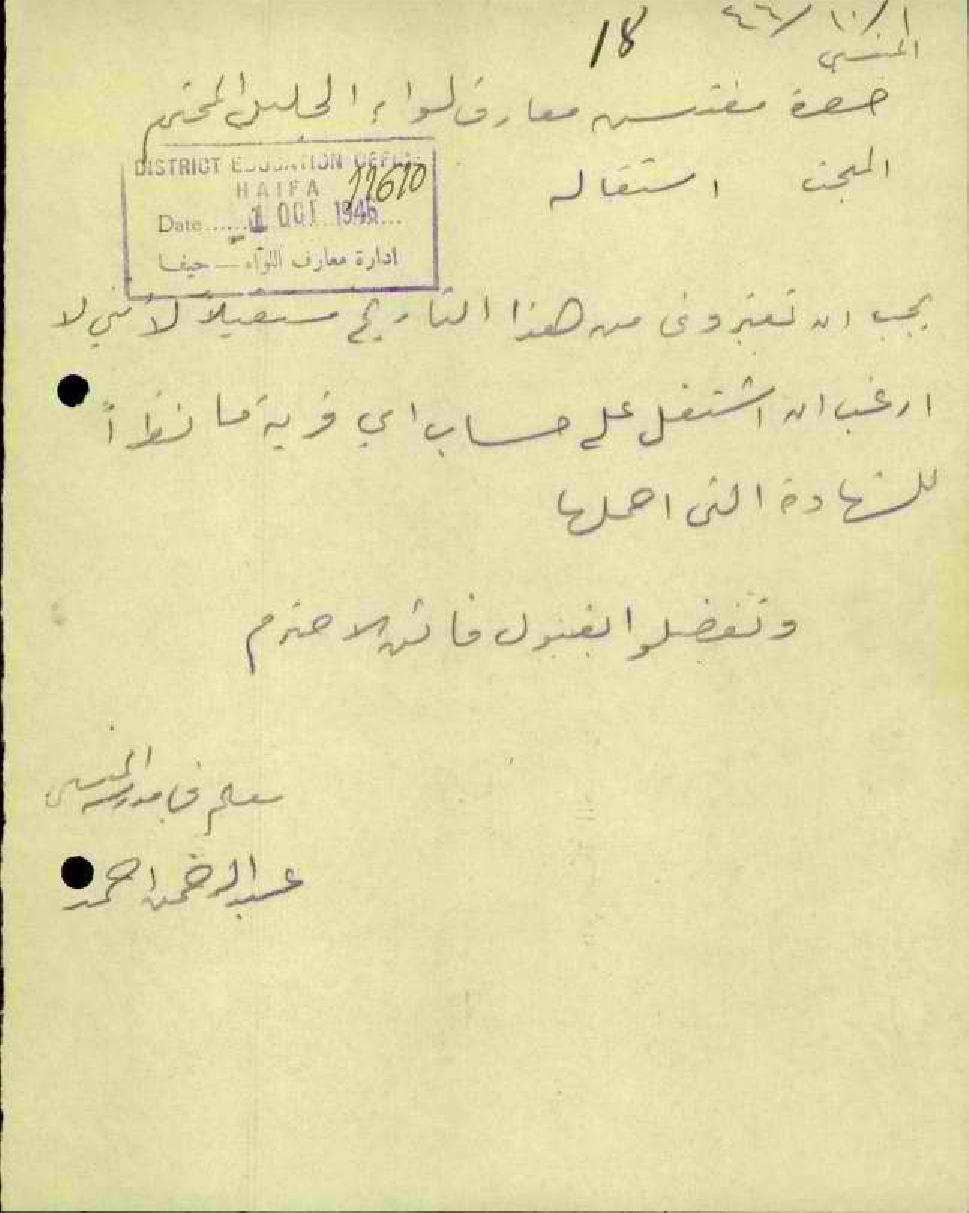 ١/١٠/٤٦
المنسي
18
حضرة مفتش معارف لواء الجليل المحترم
المبحث استقاله
DISTRICT EDUCATION OFFICE
HAIFA
11610
Date ...... 1 OCT 1946 ...
ادارة معارف اللواء — حيفا
يجب ان تعتبروني من هذا التاريخ مستقيلاً لأنني لا
ارغب ان اشتغل على حساب اي قرية ما نظراً
للشهادة التي احملها
وتفضلوا بقبول فائق الاحترام
معلم في مدرسة المنسي
عبد الرحمن احمد